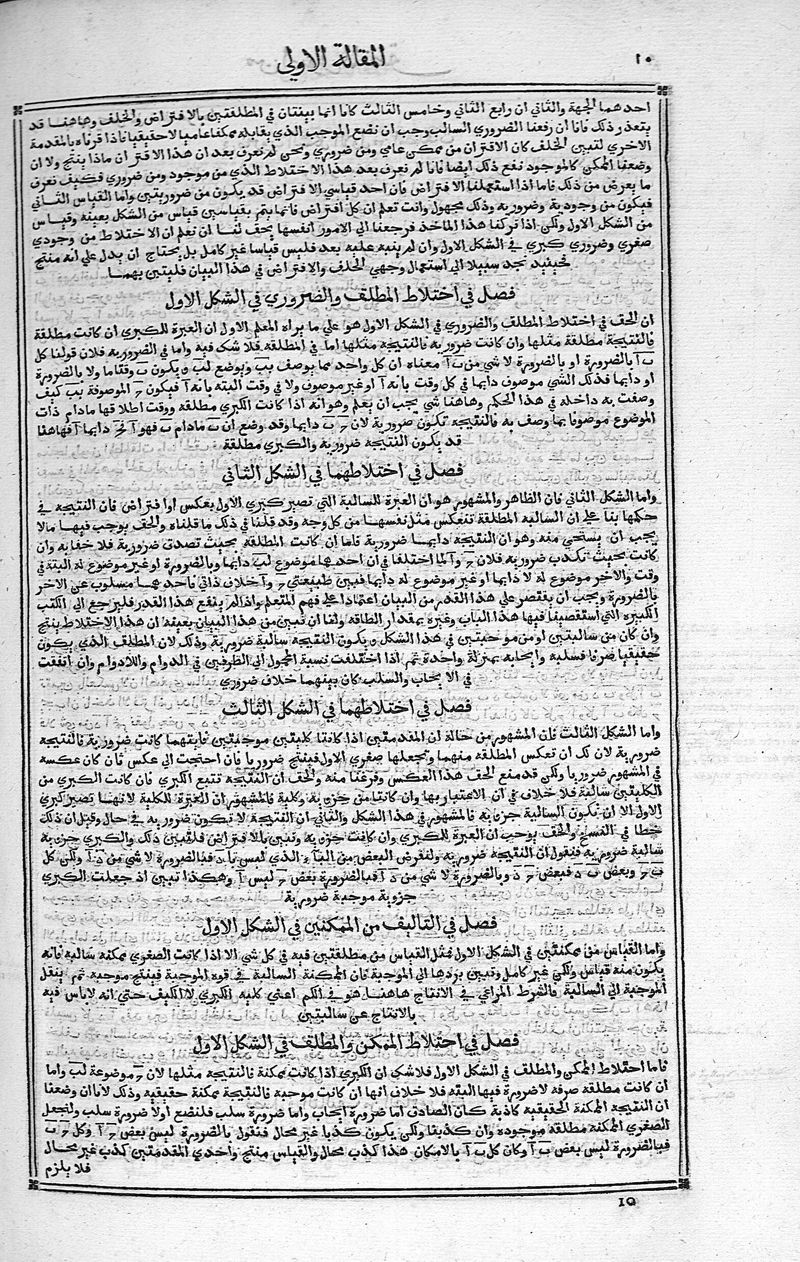 ١٠
المقالة الاولي
احدهما الجهة والثاني ان رابع الثاني وخامس الثالث كانا انما يبينتان في المطلقتين بالافتراض والخلف وهاهنا قد
يتعذر ذلك فانا ان رفعنا الضروري السالب وجب ان نضع الموجب الذي يقابله ممكنا عاميا لا حقيقيا فاذا قرناه بالمقدمة
الاخري لتبين الخلف كان الاقتران من ممكن عامي ومن ضروري ونحن لم نعرف بعد ان هذا الاقتران ماذا ينتج ولا ان
وضعنا الممكن كالموجود نفع ذلك ايضا فانا لم نعرف بعد هذا الاختلاط الذي من موجود ومن ضروري فكيف نعرف
ما يعرض من ذلك فاما اذا استعملنا الافتراض فان احد قياسي الافتراض قد يكون من ضروريتين واما القياس الثاني
فيكون من وجودية وضرورية وذلك مجهول وانت تعلم ان كل افتراض فانما يتم بقياسين قياس من الشكل بعينه وقياس
من الشكل الاول ولكن اذا تركنا هذا الماخذ فرجعنا الي الامور انفسها يحق لنا ان نعلم ان الاختلاط من وجودي
صغري وضروري كبري في الشكل الاول وان لم ينبه عليه بعد فليس قياسا غير كامل بل يحتاج ان يدل علي انه منتج
فحينيذ نجد سبيلا الي استعمال وجهي الخلف والافتراض في هذا البيان فليتبين بهما
فصل في اختلاط المطلق والضروري في الشكل الاول
ان الحق في اختلاط المطلق والضروري في الشكل الاول هو علي ما يراه المعلم الاول ان العبرة للكبري ان كانت مطلقة
فالنتيجة مطلقة مثلها وان كانت ضرورية فالنتيجة مثلها اما في المطلقة فلا شك فيه واما في الضرورية فلان قولنا كل
ب آ بالضرورة او بالضرورة لا شي من ب آ معناه ان كل واحد مما يوصف بب ويوضع لب ويكون ب وقتاما ولا بالضرورة
او دايما فذلك الشي موصوف دايما في كل وقت بانه آ او غير موصوف ولا في وقت البتة بانه آ فيكون ج الموصوفة بب كيف
وصفت به داخله في هذا الحكم وهاهنا شي يجب ان يعلم وهو انه اذا كانت الكبري مطلقة ووقت اطلاقها مادام ذات
الموضوع موصوفا بما وصف به فالنتيجة تكون ضرورية لان ج ب دايما وقد وضع ان ب مادام ب فهو آ فج دايما آ فهاهنا
قد يكون النتيجة ضرورية والكبري مطلقة
فصل في اختلاطهما في الشكل الثاني
واما الشكل الثاني فان الظاهر والمشهور هو ان العبرة للسالبة التي تصير كبري الاول بعكس او افتراض فان النتيجة في
حكمها بنا علي ان السالبه المطلقة تنعكس مثل نفسها من كل وجه وقد قلنا في ذلك ما قلناه والحق يوجب فيها مالا
يجب ان يستحيى منه وهو ان النتيجة دايما ضرورية فاما ان كانت المطلقة بحيث تصدق ضرورية فلا خفا به وان
كانت بحيث تكذب ضرورية فلان ج وآ لما اختلفا في ان احدهما موضوع لب دايما وبالضرورة او غير موضوع له البتة في
وقت والاخر موضوع له لا دايما او غير موضوع له دايما فبين طبيعتي ج وآ خلاف ذاتي فاحدهما مسلوب عن الاخر
بالضرورة ويجب ان يقتصر علي هذا القدر من البيان اعتمادا علي فهم المتعلم واذا لم ينفع هذا القدر فليرجع الي الكتب
الكبيرة التي استقصينا فيها هذا الباب وغيره بمقدار الطاقة ولنا ان نبين من هذا البيان بعينه ان هذا الاختلاط ينتج
وان كان من سالبتين او من موجبتين في هذا الشكل ويكون النتيجة سالبة ضرورية وذلك لان المطلق الذي يكون
حقيقيا صرفا فسلبه وايجابه بمنزلة واحدة ثم اذا اختلفت نسبة المحمول الي الطرفين في الدوام واللادوام وان اتفقت
في الايجاب والسلب كان بينهما خلاف ضروري
فصل في اختلاطهما في الشكل الثالث
واما الشكل الثالث فان المشهور من حالة ان المقدمتين اذا كانتا كليتين موجبتين فايتهما كانت ضرورية فالنتيجة
ضرورية لان لك ان تعكس المطلقة منهما وتجعلها صغري الاول فينتج ضروريا فان احتجت الي عكس ثان كان عكسه
في المشهور ضروريا ولكن قد منع الحق هذا العكس وفرغنا منه والحق ان النتيجة تتبع الكبري فان كانت الكبري من
الكليتين سالبة فلا خلاف في ان الاعتبار بها وان كانتا من جزية وكلية فالمشهور ان العبرة للكلية لانها تصير كبري
الاول الا ان تكون السالبة جزية فالمشهور في هذا الشكل والثاني ان النتيجة لا تكون ضرورية في حال وقيل ان ذلك
خطا في النسخ والحق يوجب ان العبرة للكبري وان كانت جزية وتبين بالافتراض فلنبين ذلك والكبري جزية
سالبة ضرورية فنقول ان النتيجة ضرورية ولنفرض البعض من الباء الذي ليس با د فبالضرورة لا شي من د آ ولكن كل
ب ج وبعض ب د فبعض ج د وبالضرورة لا شي من د آ فبالضرورة بعض ج ليس آ وهكذا تبين اذ جعلت الكبري
جزوية موجبة ضرورية
فصل في التاليف من الممكنين في الشكل الاول
واما القياس من ممكنتين في الشكل الاول فمثل القياس من مطلقتين فيه في كل شي الا اذا كانت الصغري ممكنة سالبة فانه
يكون منه قياس ولكن غير كامل وتبين بردها الي الموجبة فان الممكنة السالبة في قوة الموجبة فينتج موجبة ثم ينقل
الموجبة الي السالبة فالشرط المراعي في الانتاج هاهنا هو في الكم اعني كلية الكبري لا الكيف حتي انه لاباس فيه
بالانتاج عن سالبتين
فصل في اختلاط الممكن والمطلق في الشكل الاول
فاما اختلاط الممكن والمطلق في الشكل الاول فلاشك ان الكبري اذا كانت ممكنة فالنتيجة مثلها لان ج موضوعة لب واما
ان كانت مطلقة صرفه لاضرورة فيها البتة فلا خلاف انها ان كانت موجبة فالنتيجة ممكنة حقيقيه وذلك لانا ان وضعنا
ان النتيجة الممكنة الحقيقية كاذبة كان الصادق اما ضرورة ايجاب واما ضرورة سلب فلنضع اولا ضرورة سلب ولنجعل
الصغري الممكنة مطلقة موجوده وان كذبنا ولكن يكون كذبا غير محال فنقول بالضرورة ليس بعض ج آ وكل ج ب
فبالضرورة ليس بعض ب آ وكان كل ب آ بالامكان هذا كذب محال والقياس منتج واحدي المقدمتين كذب غير محال
فلا يلزم
١٥